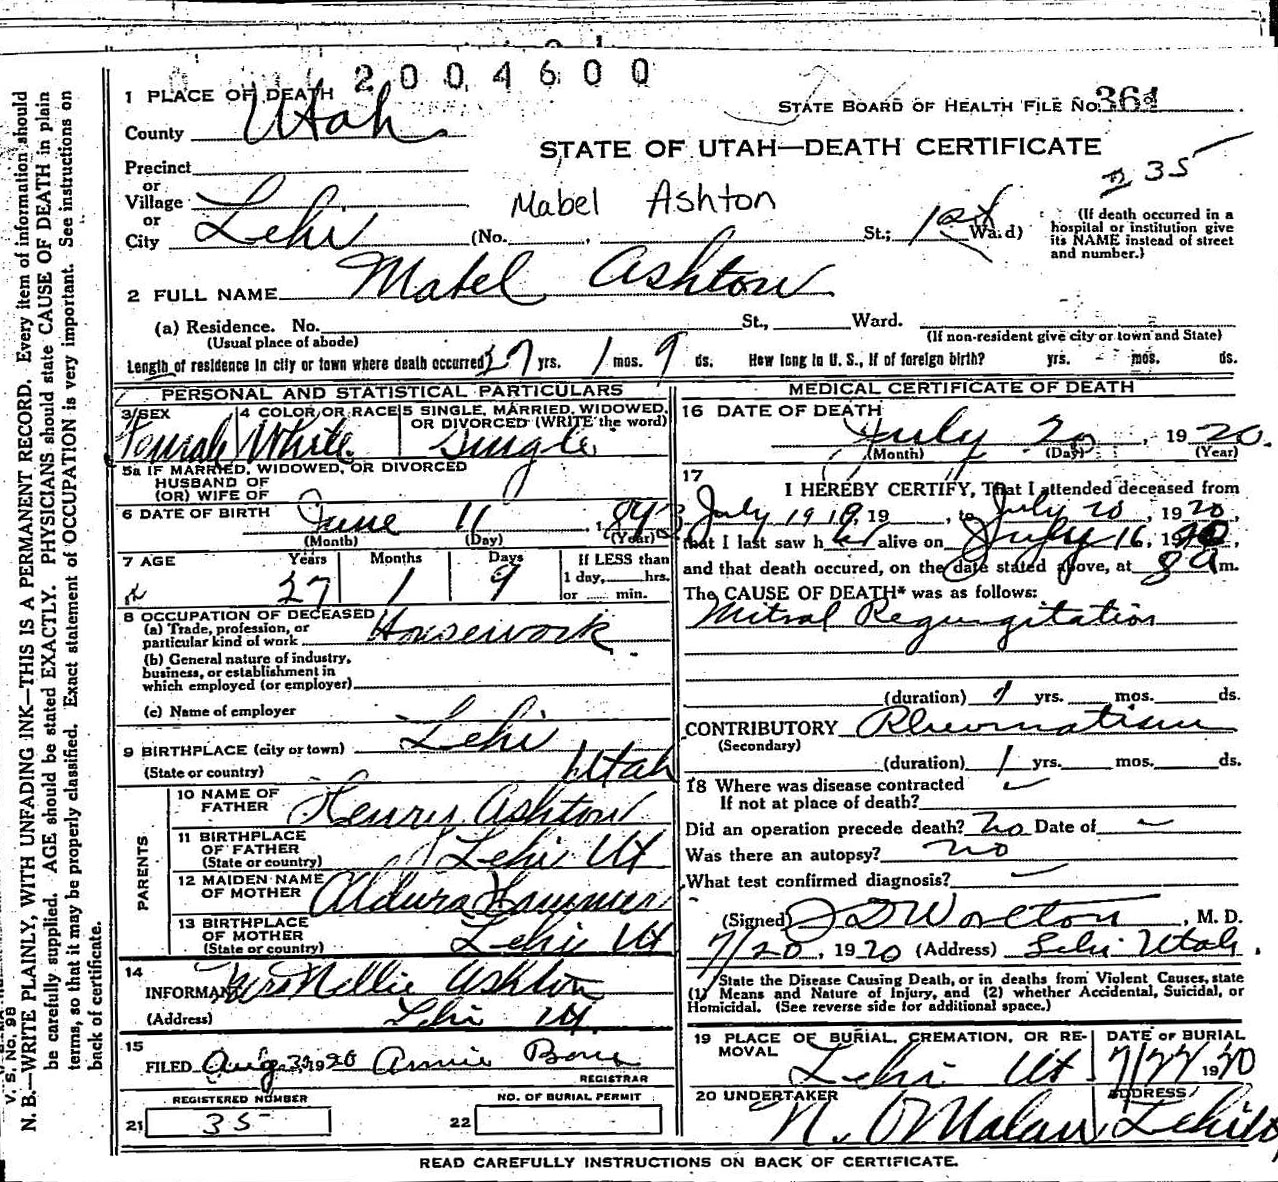 2004600
1 PLACE OF DEATH
STATE BOARD OF HEALTH FILE NO. 361
County Utah
STATE OF UTAH—DEATH CERTIFICATE
Precinct
235
or
Village
Mabel Ashton
or
City Lehi (No. , St.; 1st Ward)
(If death occurred in a hospital or institution give its NAME instead of street and number.)
2 FULL NAME Mabel Ashton
(a) Residence. No. St., Ward.
(Usual place of abode) (If non-resident give city or town and State)
Length of residence in city or town where death occurred 27 yrs. 1 mos. 9 ds. How long in U. S., if of foreign birth? yrs. mos. ds.
PERSONAL AND STATISTICAL PARTICULARS
3 SEX 4 COLOR OR RACE 5 SINGLE, MARRIED, WIDOWED, OR DIVORCED (WRITE the word)
Female White Single
5a IF MARRIED, WIDOWED, OR DIVORCED
HUSBAND OF
(OR) WIFE OF
6 DATE OF BIRTH June 11, 1893
(Month) (Day) (Year)
7 AGE Years Months Days If LESS than
27 1 9 1 day, hrs.
or min.
8 OCCUPATION OF DECEASED
(a) Trade, profession, or
particular kind of work Housework
(b) General nature of industry,
business, or establishment in
which employed (or employer)
(c) Name of employer
9 BIRTHPLACE (city or town) Lehi
(State or country) Utah
PARENTS
10 NAME OF
FATHER Henry Ashton
11 BIRTHPLACE
OF FATHER Lehi Ut
(State or country)
12 MAIDEN NAME
OF MOTHER Aldura Hammer
13 BIRTHPLACE
OF MOTHER Lehi Ut
(State or country)
14
INFORMANT Mrs Nellie Ashton
(Address) Lehi Ut.
15
FILED Aug 1920 Annie Bone
REGISTRAR
REGISTERED NUMBER NO. OF BURIAL PERMIT
21 35 22
MEDICAL CERTIFICATE OF DEATH
16 DATE OF DEATH
July 20, 1920.
(Month) (Day) (Year)
17
I HEREBY CERTIFY, That I attended deceased from
July 1919, 19 , to July 20, 1920,
that I last saw her alive on July 16, 1920,
and that death occured, on the date stated above, at 8 a m.
The CAUSE OF DEATH* was as follows:
Mitral Regurgitation
(duration) 1 yrs. mos. ds.
CONTRIBUTORY Rheumatism
(Secondary)
(duration) 1 yrs. mos. ds.
18 Where was disease contracted
If not at place of death?
Did an operation precede death? no Date of
Was there an autopsy? no
What test confirmed diagnosis?
(Signed) , M. D.
7/20, 1920 (Address) Lehi Utah.
State the Disease Causing Death, or in deaths from Violent Causes, state
(1) Means and Nature of Injury, and (2) whether Accidental, Suicidal, or
Homicidal. (See reverse side for additional space.)
19 PLACE OF BURIAL, CREMATION, OR RE- DATE OF BURIAL
MOVAL Lehi Ut 7/22 1920
20 UNDERTAKER ADDRESS
Lehi Ut
READ CAREFULLY INSTRUCTIONS ON BACK OF CERTIFICATE.
V. S. No. 98
N. B.—WRITE PLAINLY, WITH UNFADING INK—THIS IS A PERMANENT RECORD. Every item of information should
be carefully supplied. AGE should be stated EXACTLY. PHYSICIANS should state CAUSE OF DEATH in plain
terms, so that it may be properly classified. Exact statement of OCCUPATION is very important. See instructions on
back of certificate.